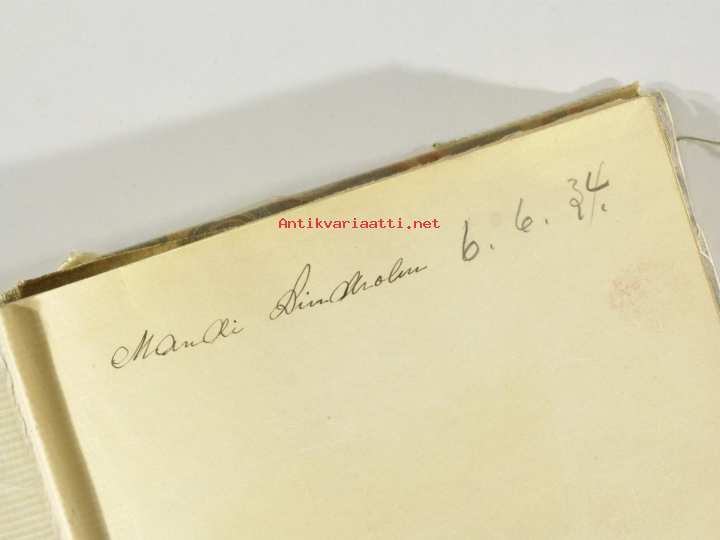 Antikvariaatti.net
Mandi Lindholm 6. 6. 34